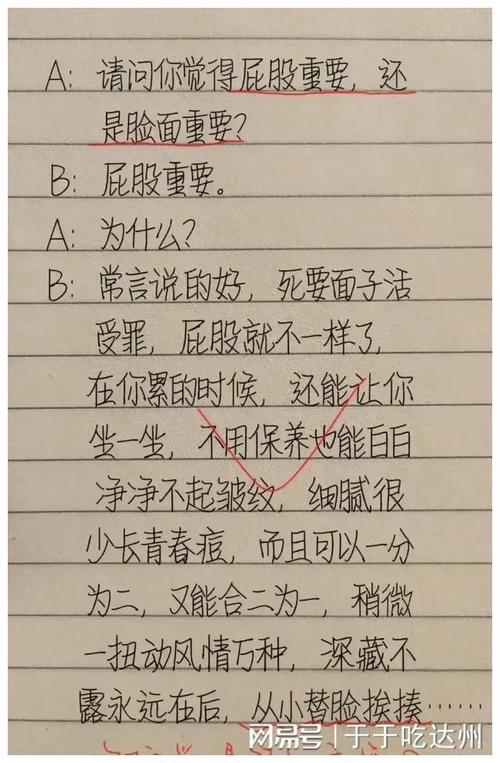 A: 请问你觉得屁股重要, 还
是脸面重要?
B: 屁股重要。
A: 为什么?
B: 常言说的好, 死要面子活
受罪, 屁股就不一样了,
在你累的时候, 还能让你
坐一坐, 不用保养也能白白
净净不起皱纹, 细腻很
少长青春痘, 而且可以一分
为二, 又能合二为一, 稍微
一扭动风情万种, 深藏不
露永远在后, 从小替脸挨揍……
网易号 | 于于吃达州